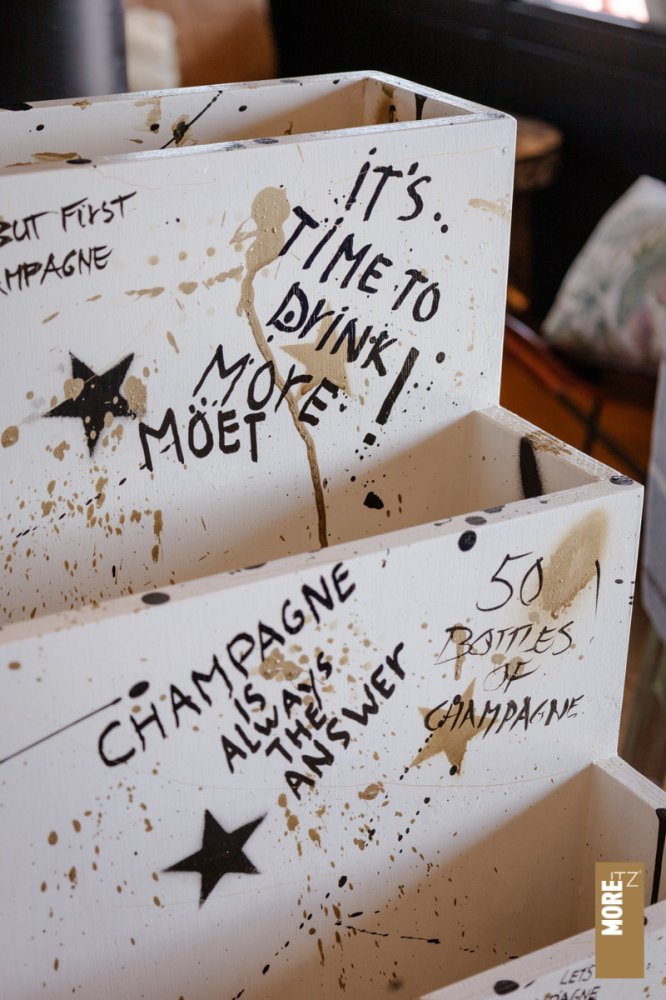 BUT FIrST
AMPAGNE
IT'S..
TIME TO
DrINK
MOrE !
MÖET
CHAMPAGNE
IS
ALWAYS
THE
ANSWER
50
BOTTLES
OF
CHAMPAGNE
LETS
MORE ITZ